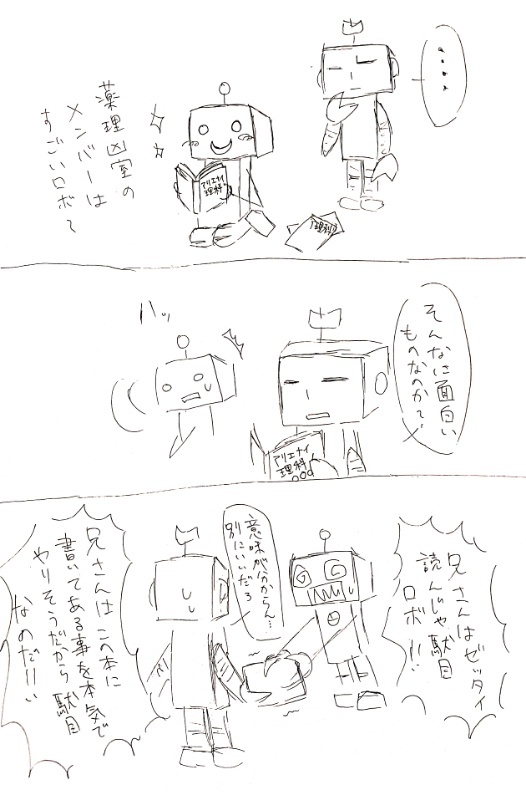 ・・・・
薬理凶室の
メンバーは
すごいロボ~
アリエナイ
理科
理科
そんなに面白い
ものなのか?
ハッ
アリエナイ
理科
兄さんはゼッタイ
読んじゃ駄目
ロボ!!
意味が分からん…
別にいいだろ
兄さんはこの本に
書いてある事を本気で
やりそうだから駄目
なのだ!!